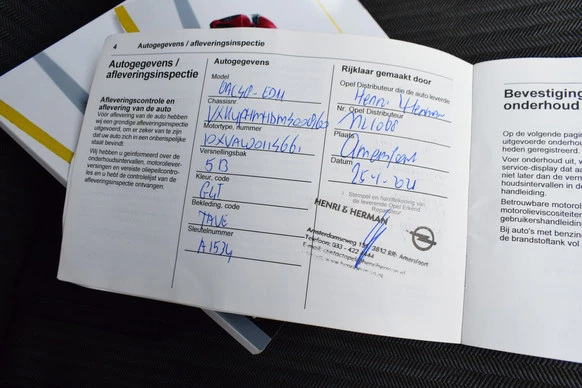 4 Autogegevens / afleveringsinspectie
Autogegevens /
afleveringsinspectie
Afleveringscontrole en
aflevering van de auto
Voor aflevering van de auto hebben
wij een grondige afleveringsinspectie
uitgevoerd, om er zeker van te zijn
dat uw auto zich in een onberispelijke
staat bevindt.
Wij hebben u geïnformeerd over de
onderhoudsintervallen, motorolieverversingen
en vereiste oliepeilcontroles
en u hebt de controlelijst van de
afleveringsinspectie ontvangen.
Autogegevens
Model
Chassisnr.
Motortype, nummer
Versnellingsbak
5 B
Kleur, code
G4T
Bekleding, code
TAVE
Sleutelnummer
A1534
Rijklaar gemaakt door
Opel Distributeur die de auto leverde
Henri & Herman
Nr. Opel Distributeur
NL1088
Plaats
Amersfoort
Datum
25-1-2021
Stempel en handtekening van
de leverende Opel Erkend
Reparateur
HENRI & HERMAN
Amsterdamseweg
3812 RR Amersfoort
Telefoon: 033 - 422
Bevestiging
onderhoud
Op de volgende pagin
uitgevoerde onderhoud
heden geregistreerd.
Voer onderhoud uit, v
service-display dat aa
niet later dan de verm
houdsintervallen in d
handleiding.
Betrouwbare motorol
motorolieviscositeiten
gebruikershandleiding
Bij auto's met benzin
de brandstoftank vol